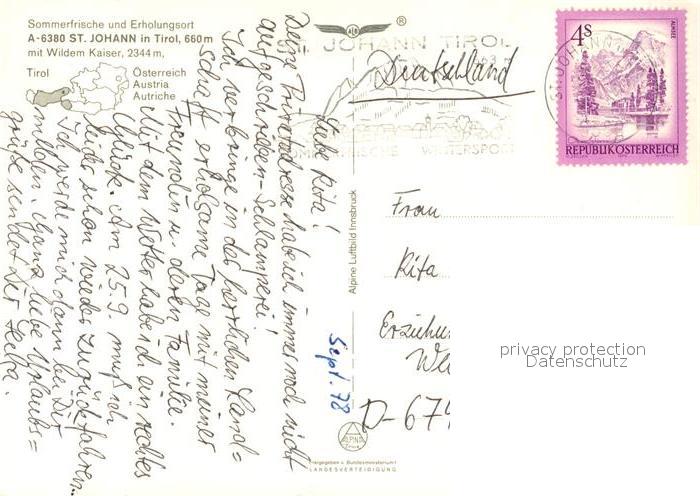 Sommerfrische und Erholungsort
A-6380 ST. JOHANN in Tirol, 660 m
mit Wildem Kaiser, 2344 m,
Tirol
Österreich
Austria
Autriche
®
ST. JOHANN TIROL
WINTERSPORT
Deutschland
ST. JOHANN
4 S
REPUBLIK ÖSTERREICH
Liebe Rita!
Deine Privatadresse hab ich immer noch nicht
aufgeschrieben - Schlamperei!
Ich verbringe in der herrlichen Land=
schaft erholsame Tage mit meiner
Freundin u. deren Familie.
Mit dem Wetter habe ich ein rechtes
Glück. Am 25.9. muß ich
leider schon wieder zurückfahren.
Ich werde mich dann bei Dir
melden. Ganz liebe Urlaubs=
grüße sendet Dir
Sept. 78
Alpine Luftbild Innsbruck
Frau
Rita
Erziehu
We
D-674
privacy protection
Datenschutz
ALPINE
Freigegeben v. Bundesministerium f.
LANDESVERTEIDIGUNG